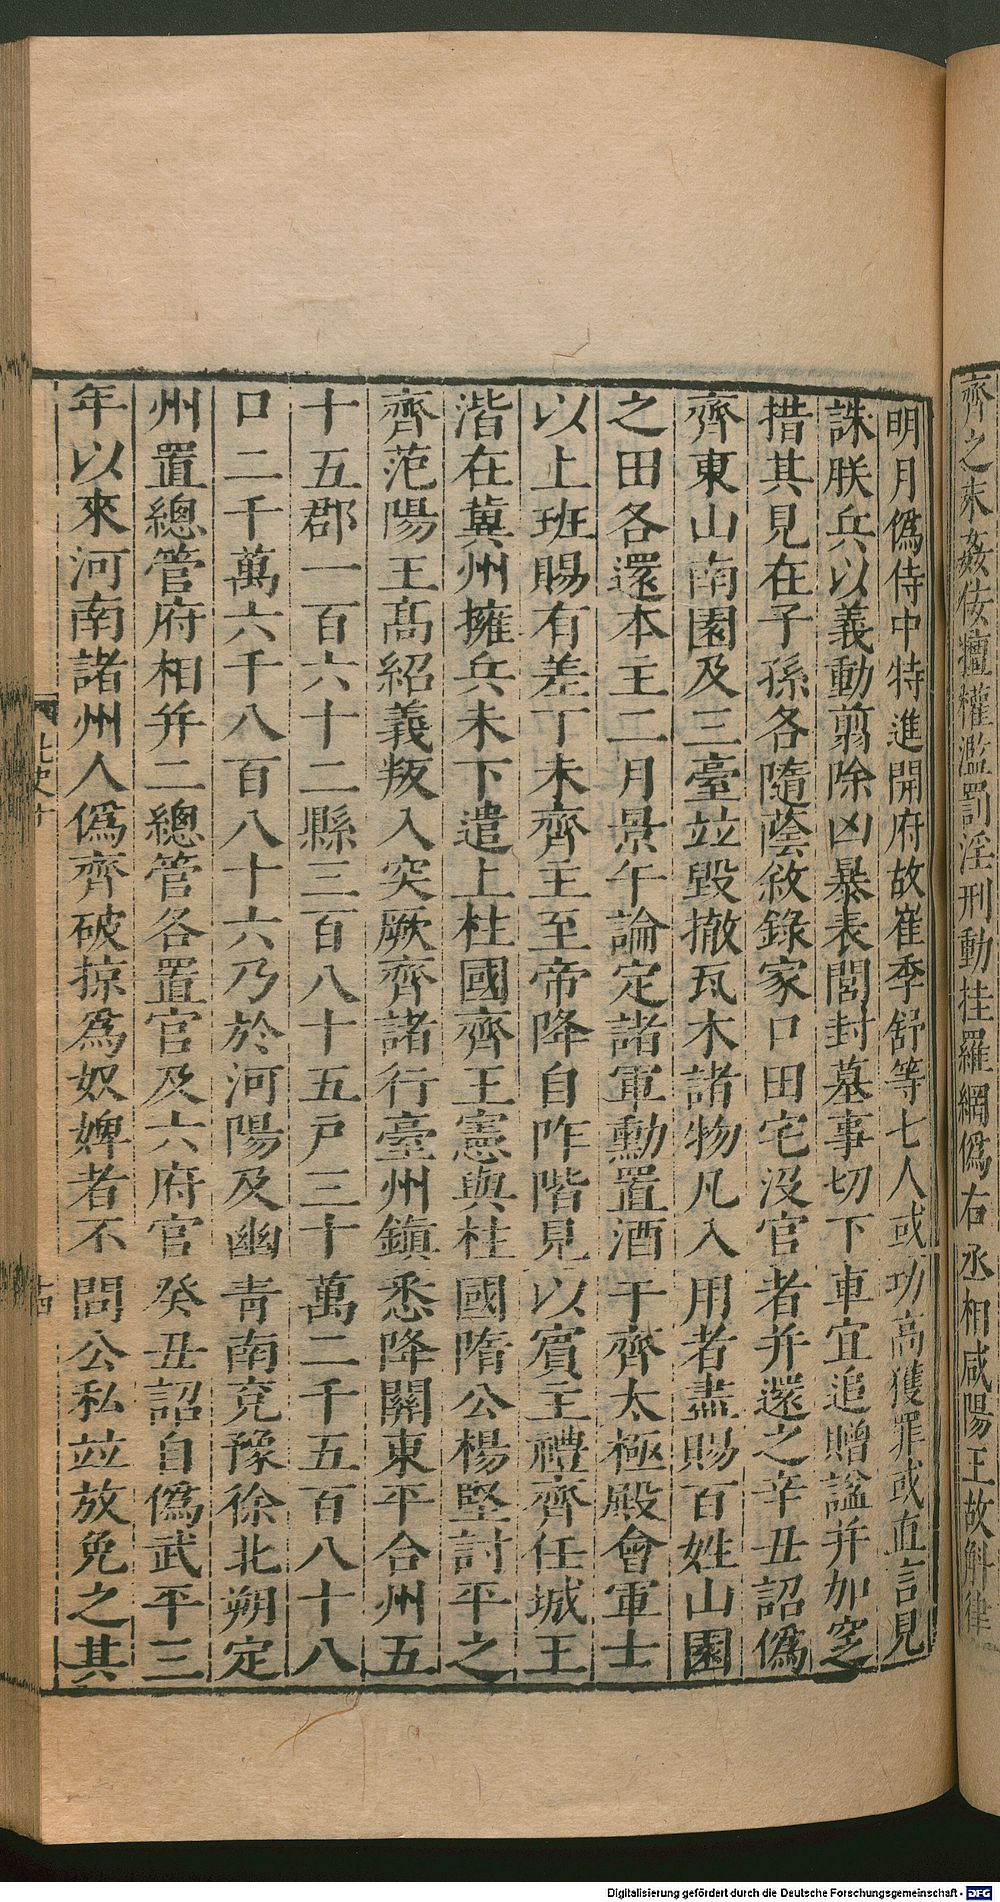 齊之末姦佞擅權濫罰淫刑動挂羅網偽右丞相咸陽王故斛律
明月偽侍中特進開府故崔季舒等七人或功高獲罪或直言見
誅朕兵以義動翦除凶暴表閭封墓事切下車宜追贈諡并加窆
措其見在子孫各隨蔭敘錄家口田宅沒官者并還之辛丑詔偽
齊東山南園及三臺竝毀撤瓦木諸物凡入用者盡賜百姓山園
之田各還本主二月景午論定諸軍勳置酒于齊太極殿會軍士
以上班賜有差丁未齊主至帝降自阼階見以賓主禮齊任城王
湝在冀州擁兵未下遣上柱國齊王憲與柱國隋公楊堅討平之
齊范陽王高紹義叛入突厥齊諸行臺州鎮悉降關東平合州五
十五郡一百六十二縣三百八十五戶三十萬二千五百八十八
口二千萬六千八百八十六乃於河陽及幽青南兗豫徐北朔定
州置總管府相并二總管各置官及六府官癸丑詔自偽武平三
年以來河南諸州人偽齊破掠爲奴婢者不問公私竝放免之其
北史十
十四
Digitalisierung gefördert durch die Deutsche Forschungsgemeinschaft - DFG